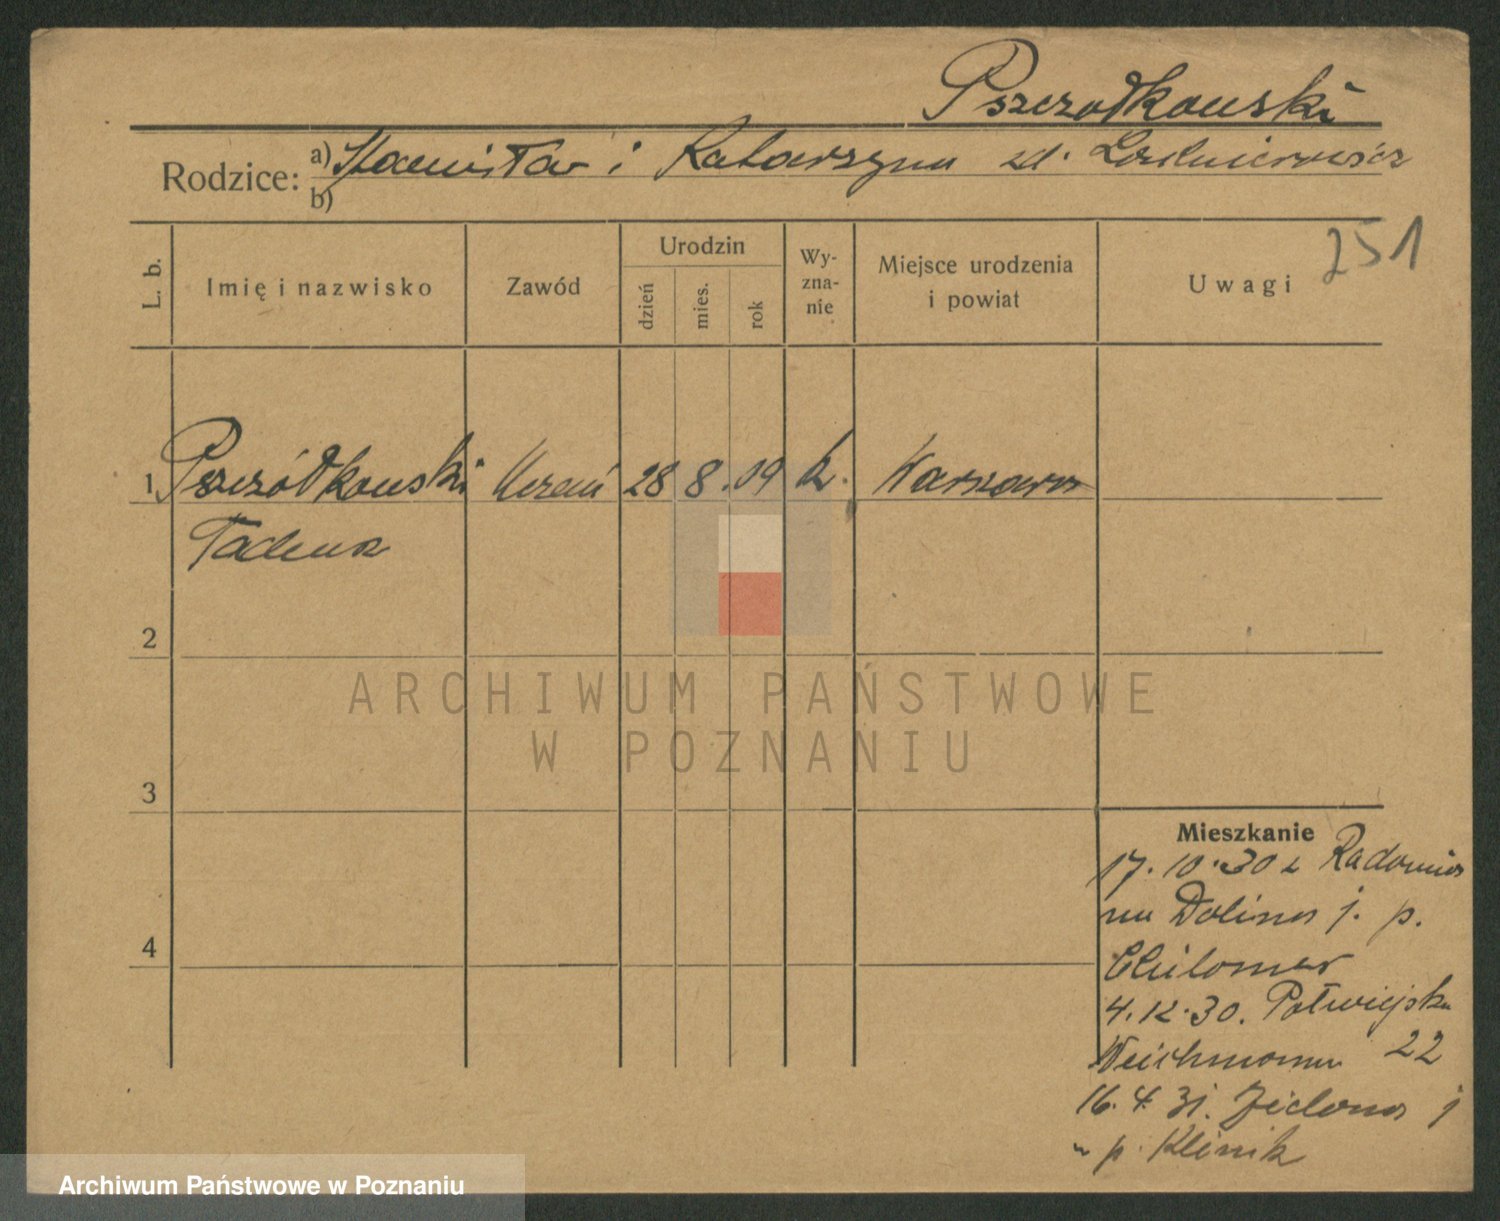 Pszczółkowski
Rodzice: a) Stanisław i Katarzyna zd.
b)
251
L. b. Imię i nazwisko Zawód Urodzin dzień mies. rok Wy-zna-nie Miejsce urodzenia i powiat Uwagi
1 Pszczółkowski Uczeń 28 8. 09 k. Warszawa
Tadeusz
2
ARCHIWUM PAŃSTWOWE
W POZNANIU
3
Mieszkanie
17.10.30 z Radomia
na Dolina j. p.
4
4.12.30. Półwiejska
22
16.4.31. Zielona 1
u p. Klinik
Archiwum Państwowe w Poznaniu